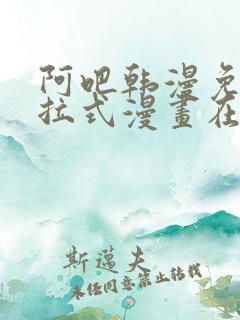 阿吧韩漫免
拉式漫畫在
斯邁夫
未经同意禁止转载